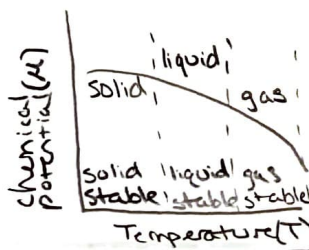 chemical
potential(μ)
liquid
solid
gas
solid liquid gas
stable stable stable
Temperature(T)